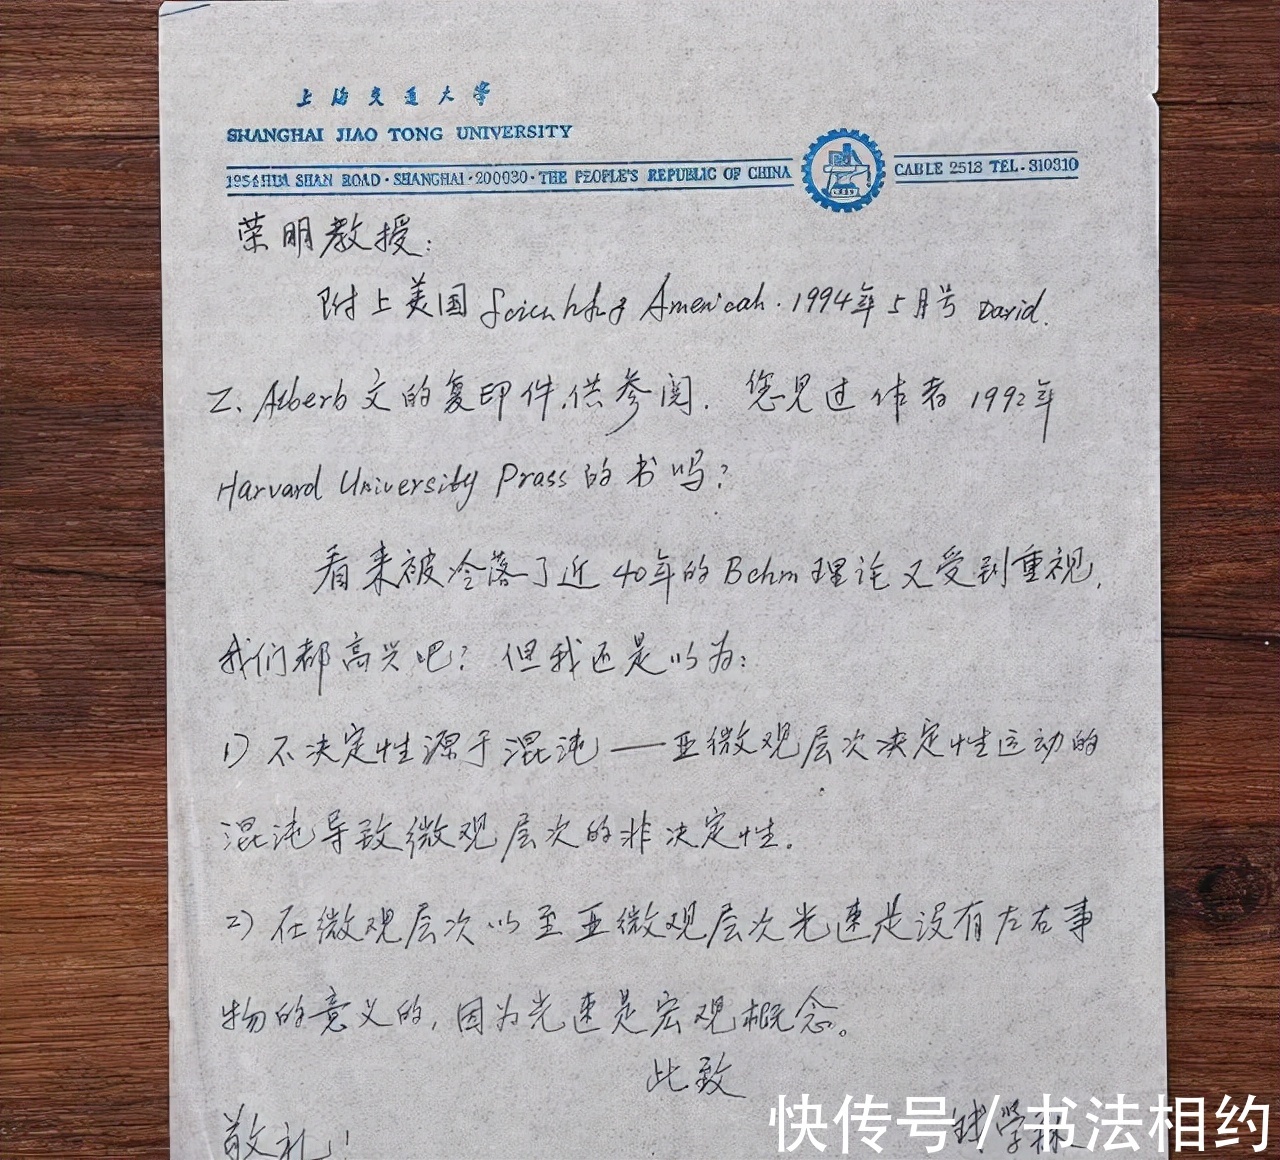 上海交通大学
SHANGHAI JIAO TONG UNIVERSITY
1954 HUA SHAN ROAD · SHANGHAI · 200030 · THE PEOPLE'S REPUBLIC OF CHINA
CABLE 2513 TEL. 310310
荣明教授:
附上美国 Scientific American. 1994年5月号 David.
Z. Alberb 文的复印件,供参阅. 您见过作者 1992年
Harvard University Prass 的书吗?
看来被冷落了近40年的 Bohm 理论又受到重视,
我们都高兴吧? 但我还是以为:
1) 不决定性源于混沌——亚微观层次决定性运动的
混沌导致微观层次的非决定性。
2) 在微观层次以至亚微观层次光速是没有左右事
物的意义的, 因为光速是宏观概念。
此致
敬礼!
钱学森
快传号/书法相约